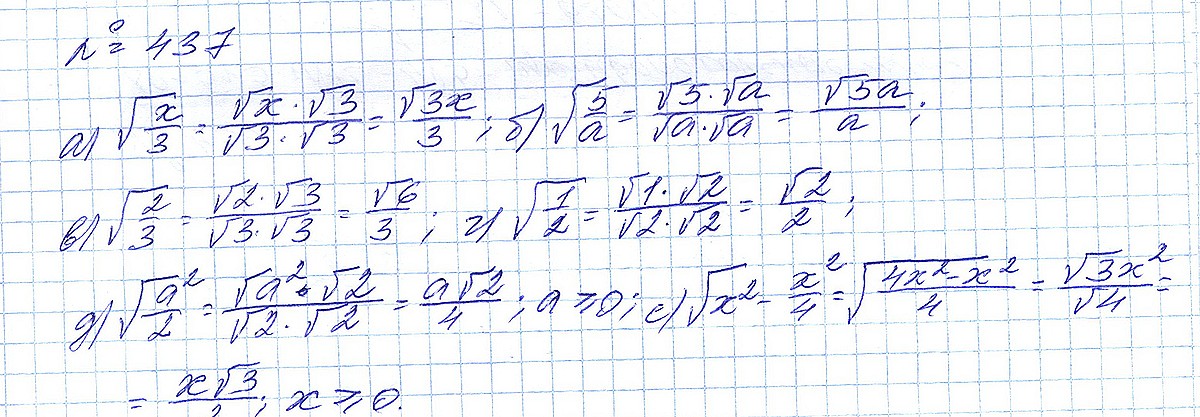 № 437
а) √(x/3) = (√x · √3)/(√3 · √3) = √3x/3; б) √(5/a) = (√5 · √a)/(√a · √a) = √5a/a;
в) √(2/3) = (√2 · √3)/(√3 · √3) = √6/3; г) √(1/2) = (√1 · √2)/(√2 · √2) = √2/2;
д) √(a²/2) = (√a² · √2)/(√2 · √2) = a√2/4; a ≥ 0; е) √(x² - x²/4) = √((4x² - x²)/4) = √3x²/√4 =
= x√3/2; x ≥ 0.